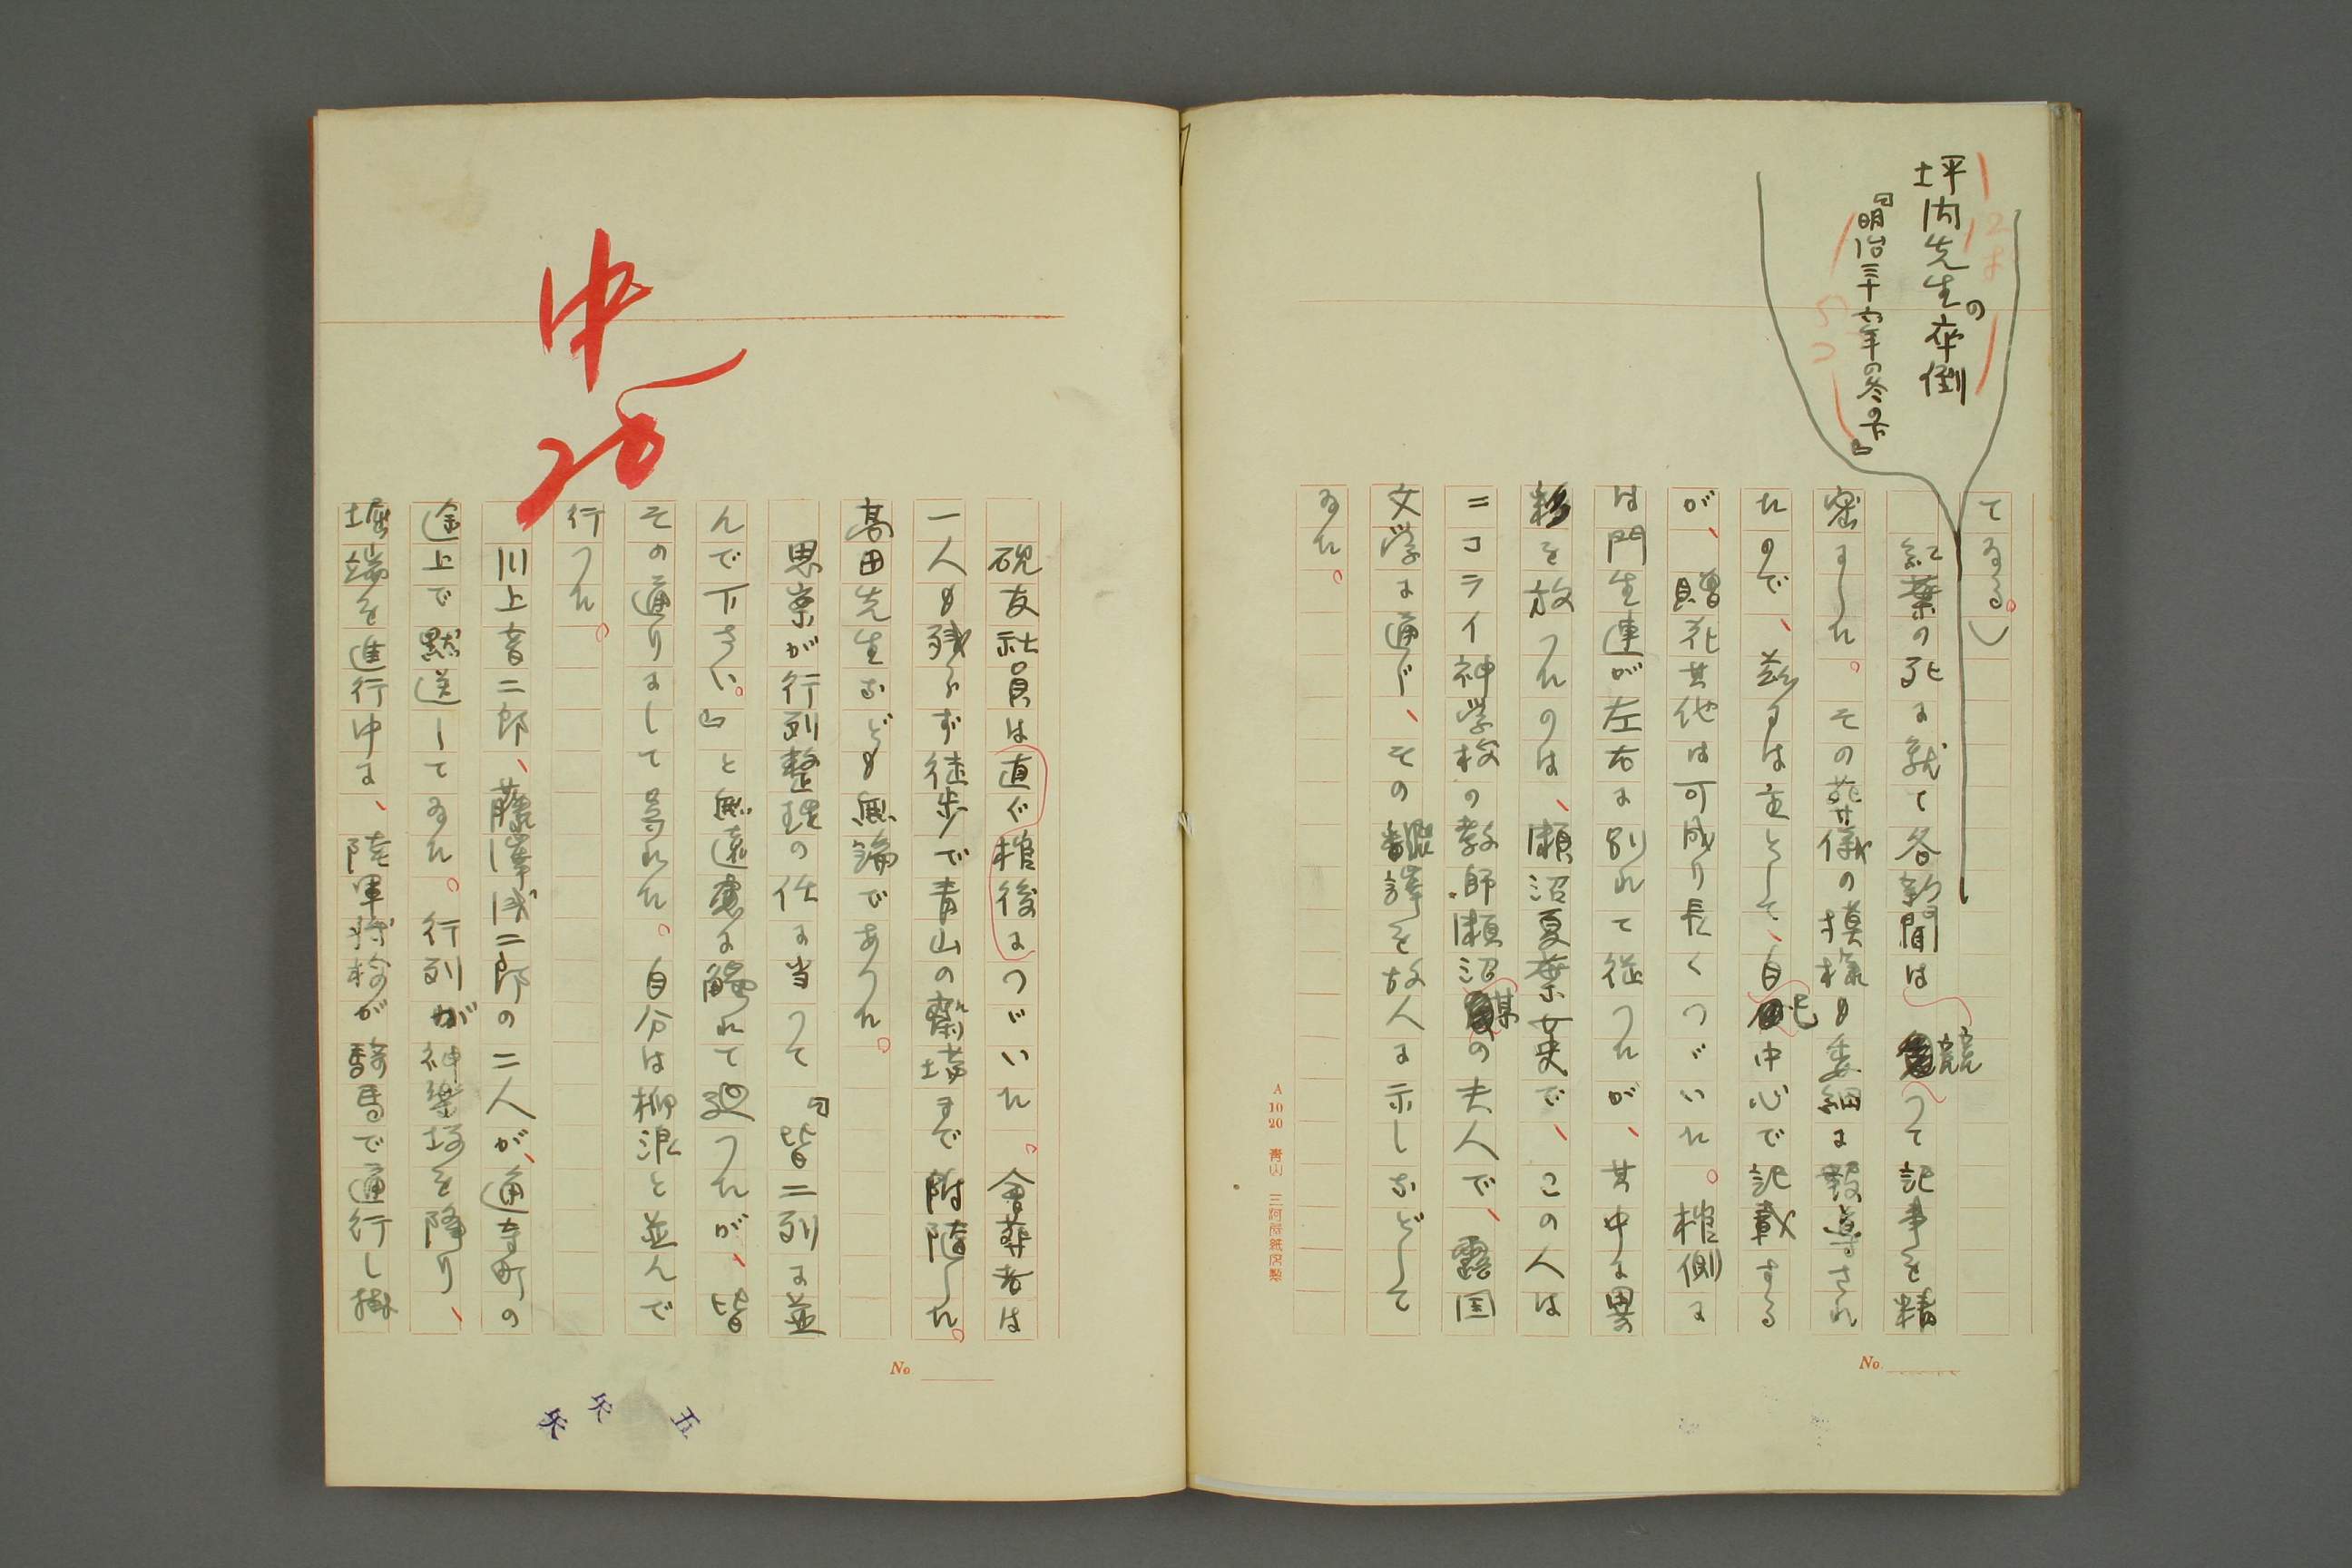 坪内先生の卒倒
『明治三十六年の冬の下』
てゐる。）
紅葉の死に就て各新聞は競つて記事を精
密にした。その葬儀の模様も委細に報道され
たので、茲には主として、自己中心で記載する
が、贈花其他は可成り長くつゞいた。棺側に
は門生連が左右に別れて従つたが、其中に異
彩を放つたのは、瀬沼夏葉女史で、この人は
ニコライ神学校の教師瀬沼某の夫人で、露国
文学に通じ、その飜譯を故人に示しなどして
ゐた。
A 10 20 青山 三河屋紙店製
No.
中
20
硯友社員は直ぐ棺後につゞいた。會葬者は
一人も残らず徒歩で青山の齋場まで附随した。
高田先生なども無論であつた。
思案が行列整理の任に当つて『皆二列に並
んで下さい。』と無遠慮に觸れて廻つたが、皆
その通りにして呉れた。自分は柳浪と並んで
行つた。
川上音二郎、藤澤浅二郎の二人が、通寺町の
途上で黙送してゐた。行列が神楽坂を降り、
堀端を進行中に、陸軍将校が騎馬で通行し掛
No.
五